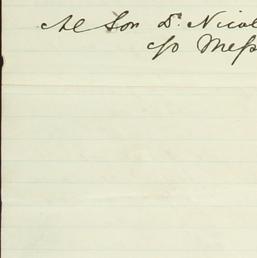 Al Son Dr. Nicol
c/o Mess